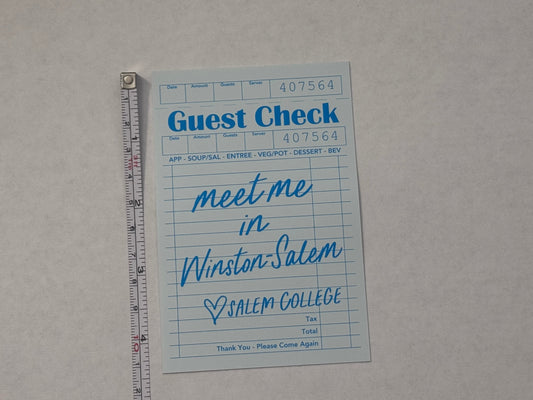 Date Amount Guests Server 407564
Guest Check
Date Amount Guests Server 407564
APP - SOUP/SAL - ENTREE - VEG/POT - DESSERT - BEV
meet me
in
Winston-Salem
SALEM COLLEGE
Tax
Total
Thank You - Please Come Again
1
2
3
4